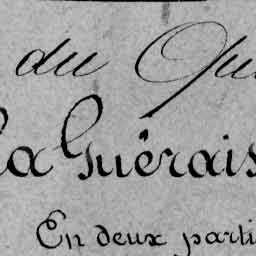 du Qu
La Guérais
En deux parti